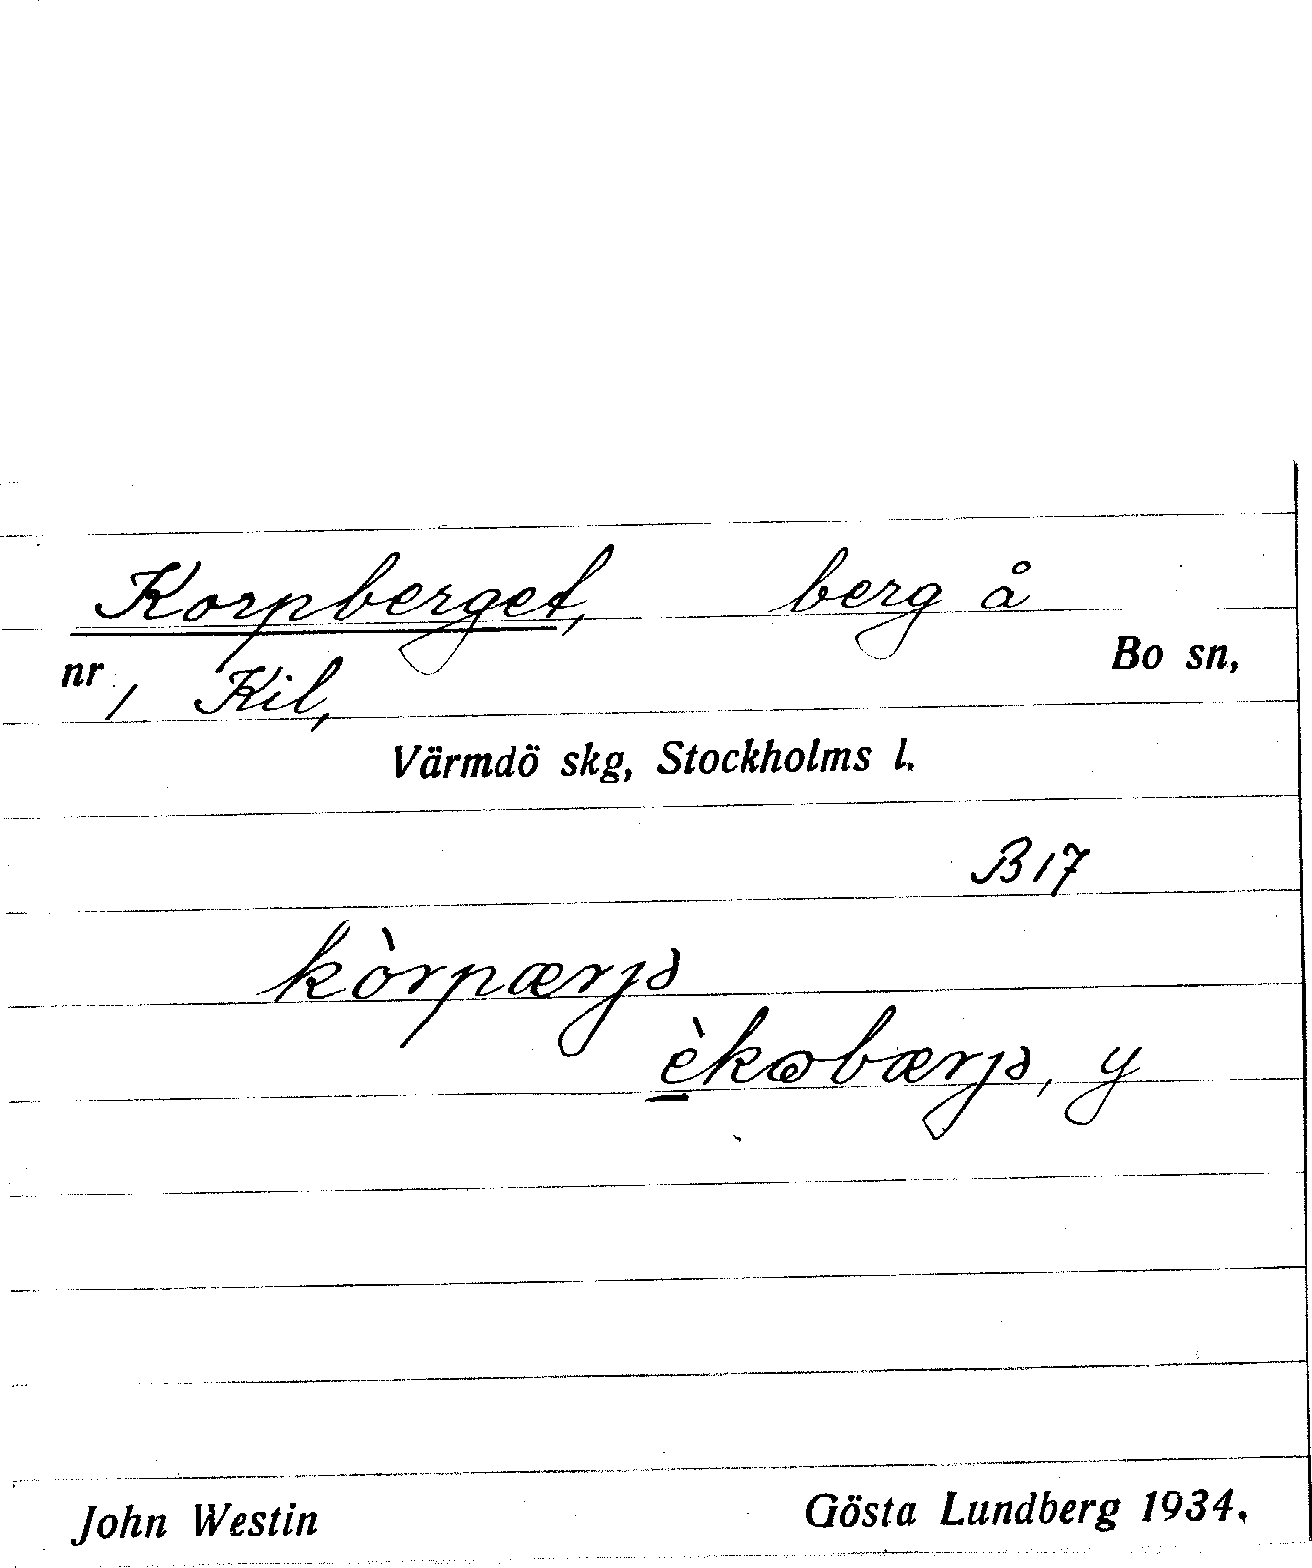 Korpberget, berg å
nr 1 Kil, Bo sn,
Värmdö skg, Stockholms l.
B 17
kòrpærjə
èkobærjə, y
John Westin Gösta Lundberg 1934.